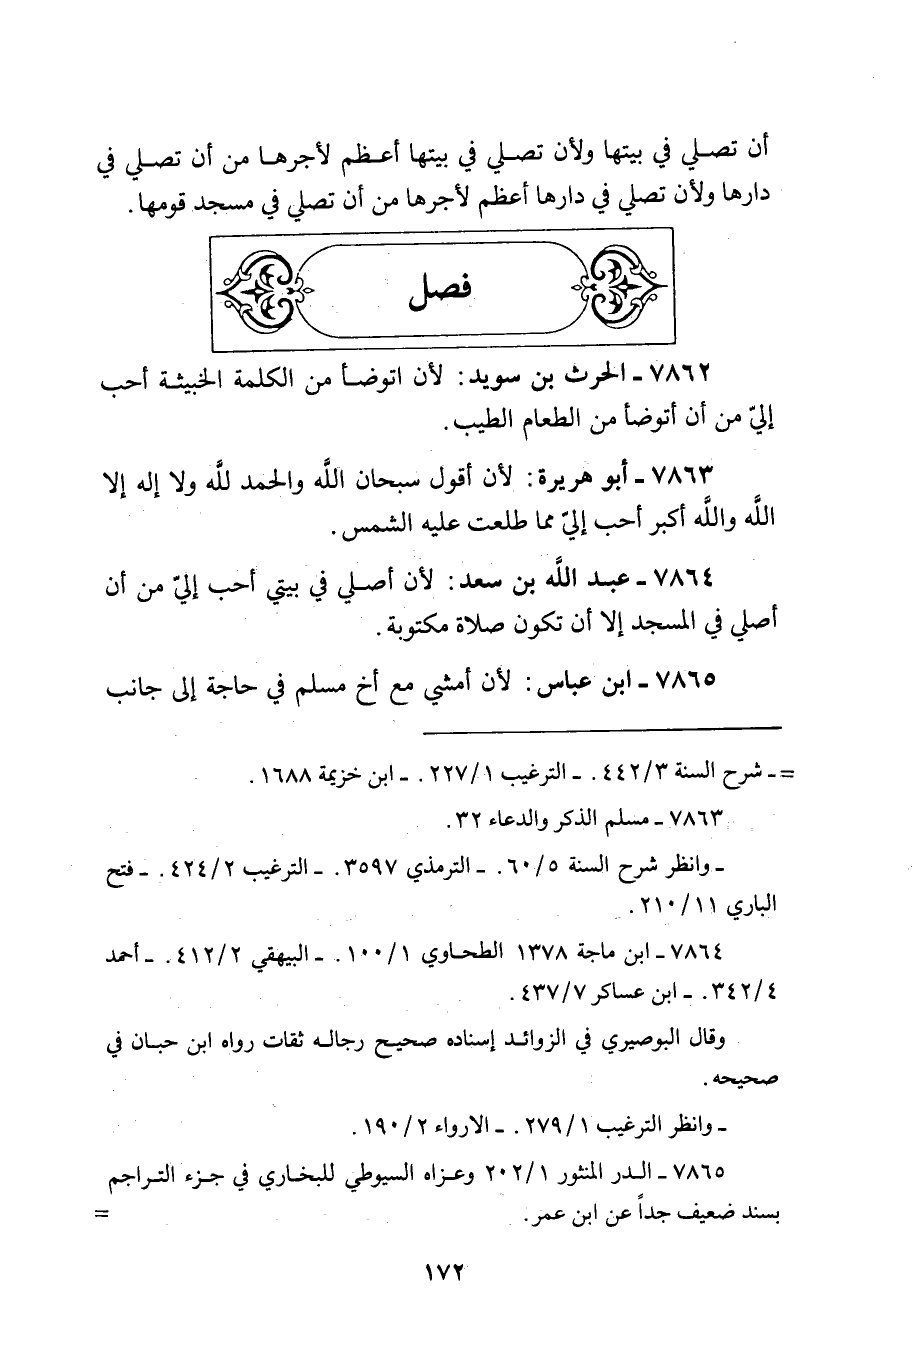 أن تصلي في بيتها ولأن تصلي في بيتها أعظم لأجرها من أن تصلي في
دارها ولأن تصلي في دارها أعظم لأجرها من أن تصلي في مسجد قومها.
فصل
٧٨٦٢ ـ الحرث بن سويد: لأن اتوضأ من الكلمة الخبيثة أحب
إليّ من أن أتوضأ من الطعام الطيب.
٧٨٦٣ ـ أبو هريرة: لأن أقول سبحان اللَّه والحمد للَّه ولا إله إلا
اللَّه واللَّه أكبر أحب إليّ مما طلعت عليه الشمس.
٧٨٦٤ ـ عبد اللَّه بن سعد: لأن أصلي في بيتي أحب إليّ من أن
أصلي في المسجد إلا أن تكون صلاة مكتوبة.
٧٨٦٥ ـ ابن عباس: لأن أمشي مع أخ مسلم في حاجة إلى جانب
=ـ شرح السنة ٤٤٢/٣. ـ الترغيب ٢٢٧/١. ـ ابن خزيمة ١٦٨٨.
٧٨٦٣ ـ مسلم الذكر والدعاء ٣٢.
ـ وانظر شرح السنة ٦٠/٥. ـ الترمذي ٣٥٩٧. ـ الترغيب ٤٢٤/٢. ـ فتح
الباري ٢١٠/١١.
٧٨٦٤ ـ ابن ماجة ١٣٧٨ الطحاوي ١٠٠/١. ـ البيهقي ٤١٢/٢. ـ أحمد
٣٤٢/٤. ـ ابن عساكر ٤٣٧/٧.
وقال البوصيري في الزوائد إسناده صحيح رجاله ثقات رواه ابن حبان في
صحيحه.
ـ وانظر الترغيب ٢٧٩/١. ـ الارواء ١٩٠/٢.
٧٨٦٥ ـ الدر المنثور ٢٠٢/١ وعزاه السيوطي للبخاري في جزء التراجم
بسند ضعيف جداً عن ابن عمر. =
١٧٢